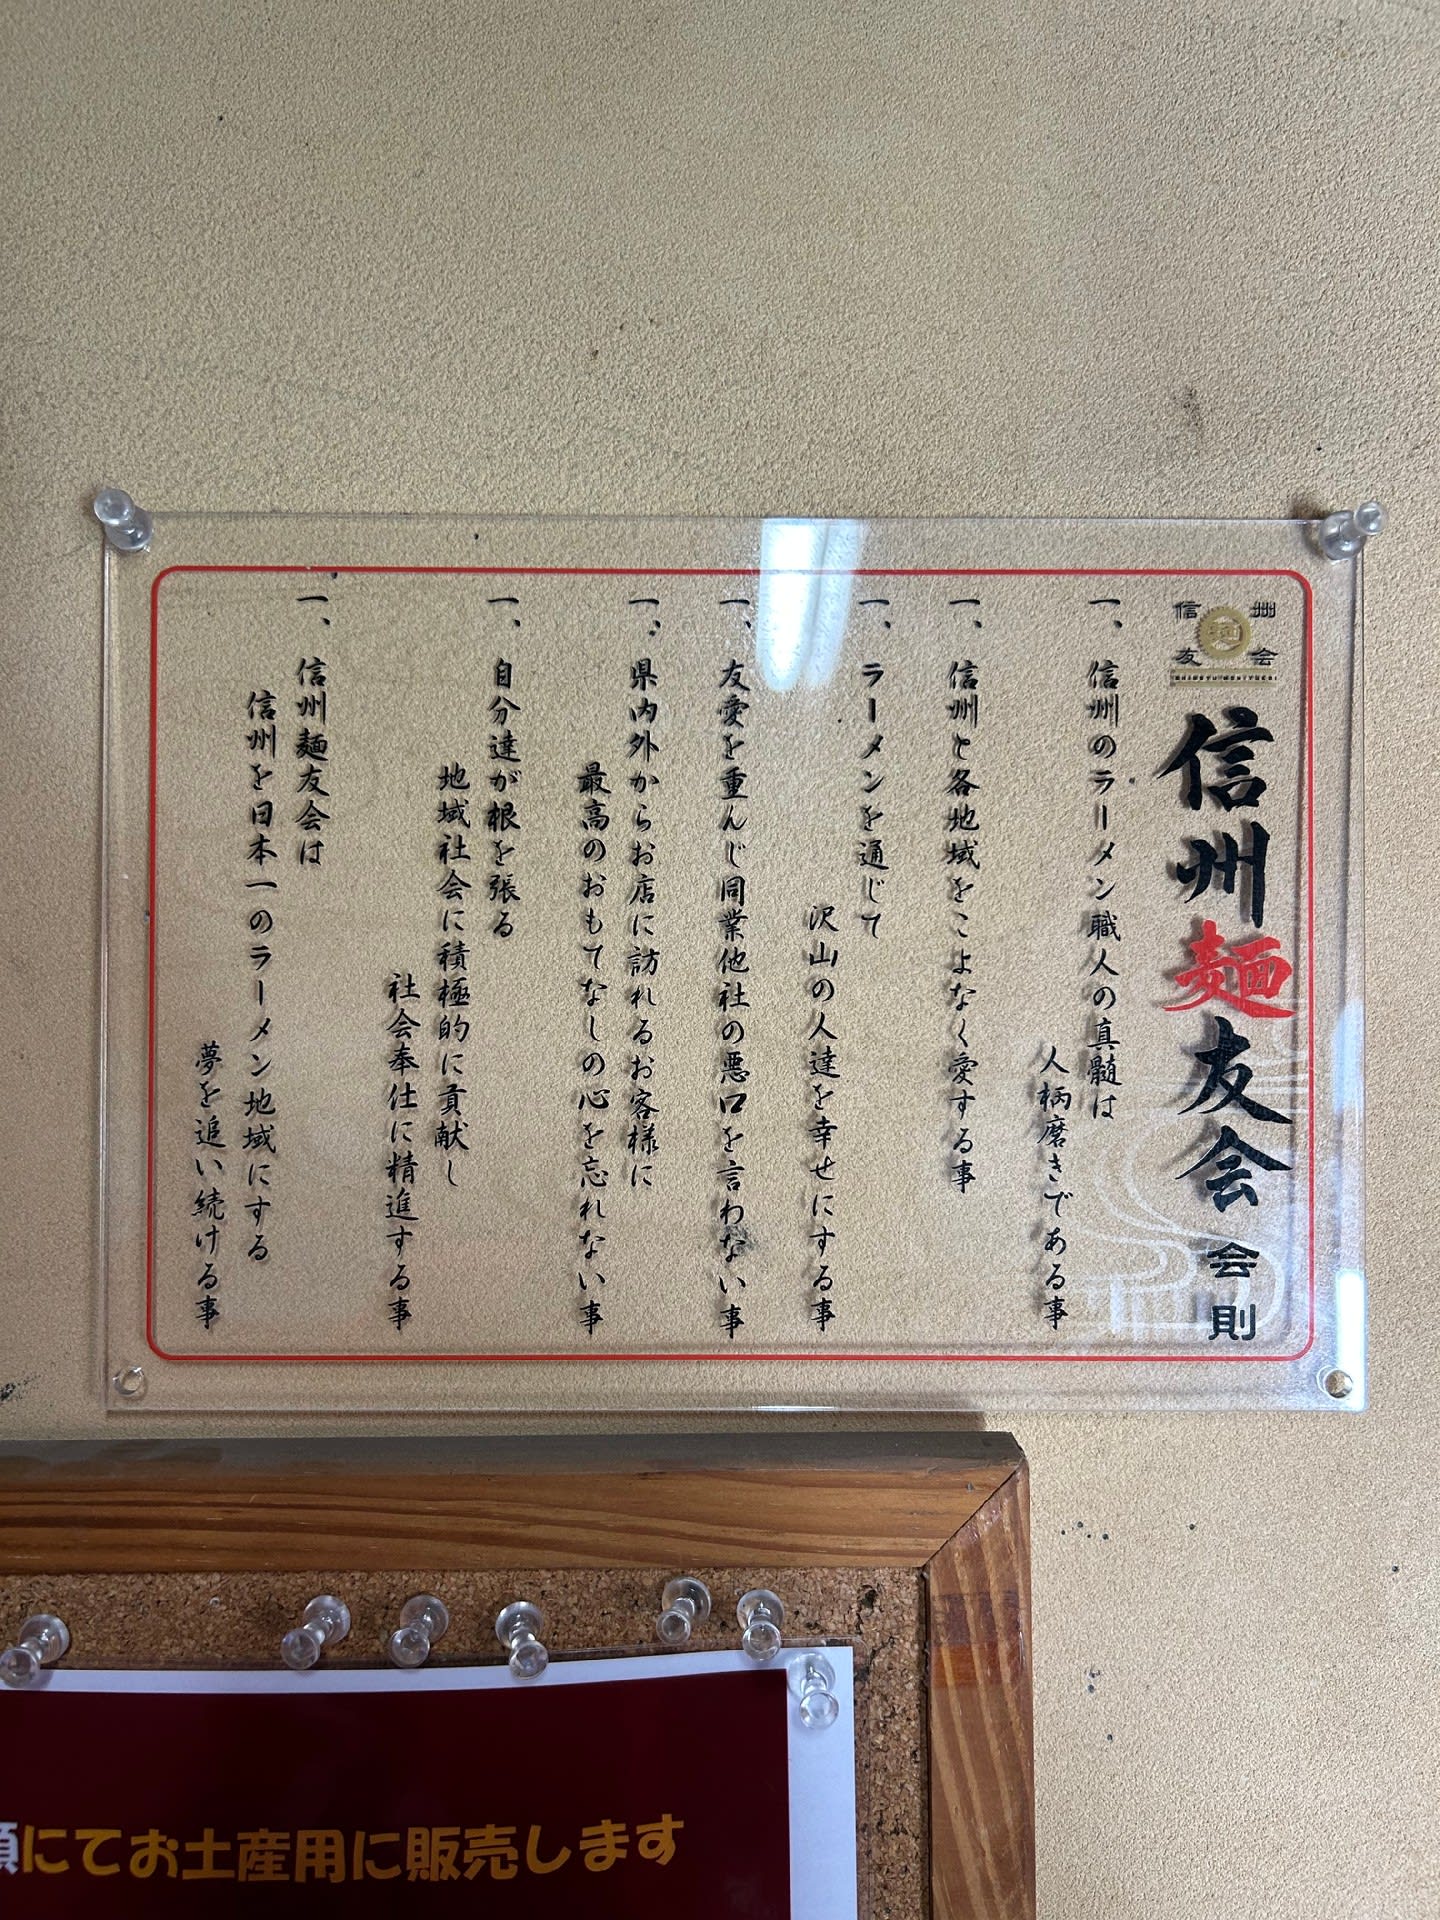 信州
麺
友会
信州麺友会 会則
一、信州のラーメン職人の真髄は
人柄磨きである事
一、信州と各地域をこよなく愛する事
一、ラーメンを通じて
沢山の人達を幸せにする事
一、友愛を重んじ同業他社の悪口を言わない事
一、県内外からお店に訪れるお客様に
最高のおもてなしの心を忘れない事
一、自分達が根を張る
地域社会に積極的に貢献し
社会奉仕に精進する事
一、信州麺友会は
信州を日本一のラーメン地域にする
夢を追い続ける事
にてお土産用に販売します